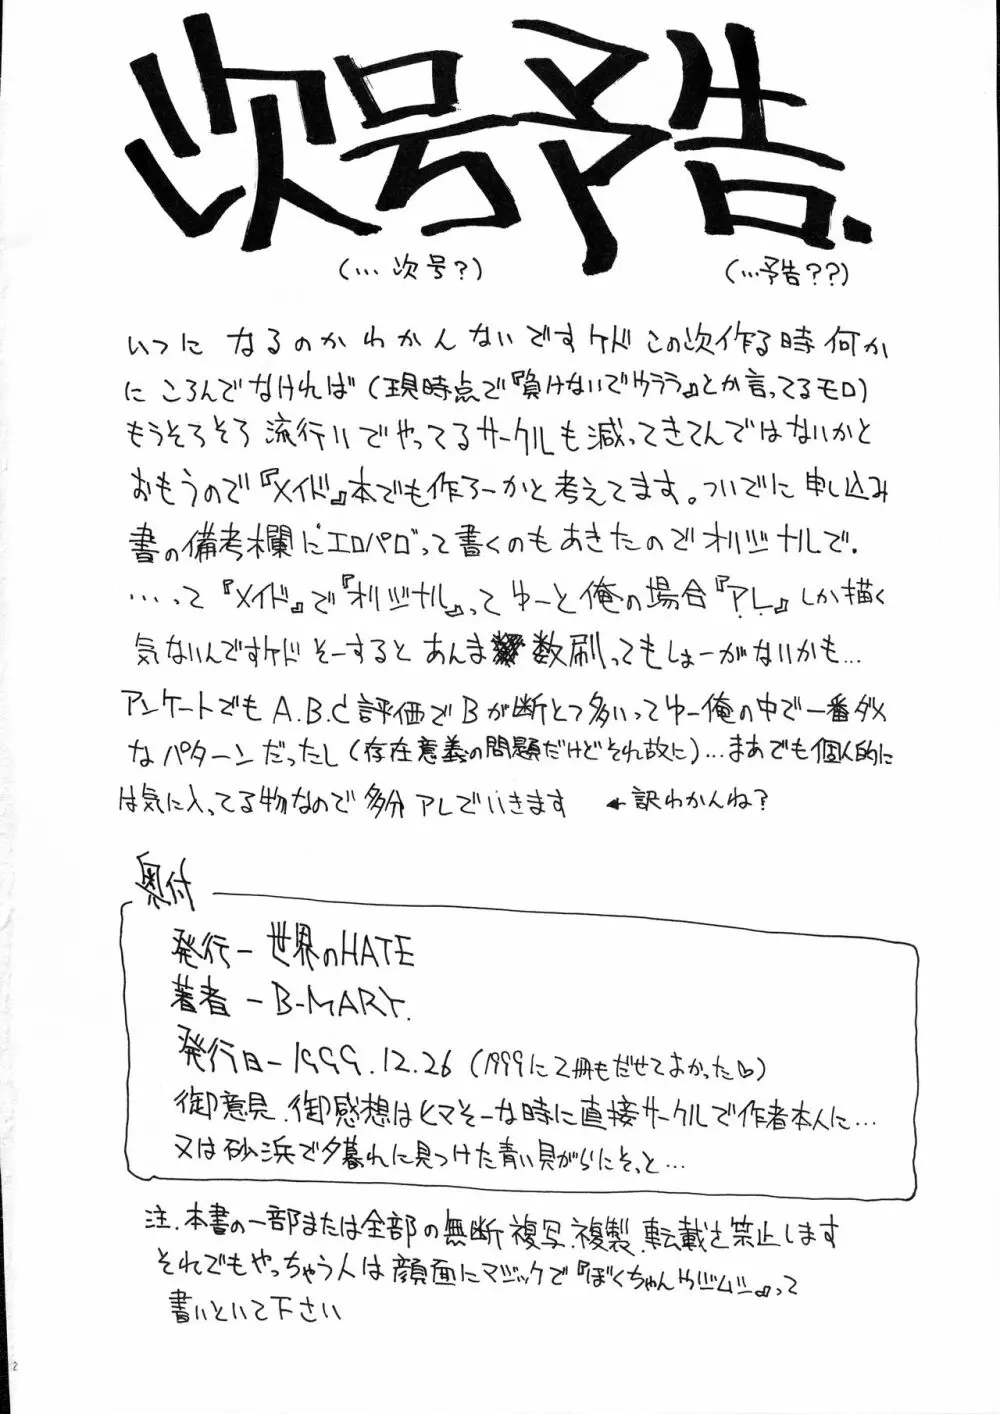 次号予告.
(… 次号?)
(…予告??)
いつに なるのかわかんないですケド この次作る時 何か
に ころんでなければ (現時点で『負けないでウララ』とか言ってるモロ)
もうそろそろ 流行りでやってるサークルも減ってきてんではないかと
おもうので『メイド』本でも作ろーかと考えてます。ついでに申し込み
書の備考欄にエロパロって書くのもあきたのでオリジナルで.
…って『メイド』で『オリジナル』ってゆーと俺の場合『アレ』しか描く
気ないんですケド そーすると あんま 数刷ってもしょーがないかも…
アンケートでも A.B.C評価で Bが断とつ多いってゆー俺の中で一番ダメ
なパターンだったし (存在意義の問題だけどそれ故に)…まあでも個人的に
は気に入ってる物なので多分アレでいきます ←訳わかんね?
奥付
発行ー世界のHATE
著者 ーB-MARY.
発行日ー1999.12.26 (1999に2冊もだせてよかった♡)
御意見.御感想はヒマそーな時に直接サークルで作者本人に…
又は砂浜で夕暮れに見つけた青い貝がらにそっと…
注.本書の一部または全部の無断複写.複製.転載を禁止します
それでもやっちゃう人は顔面にマジックで『ぼくちゃん』って
書いといて下さい
2